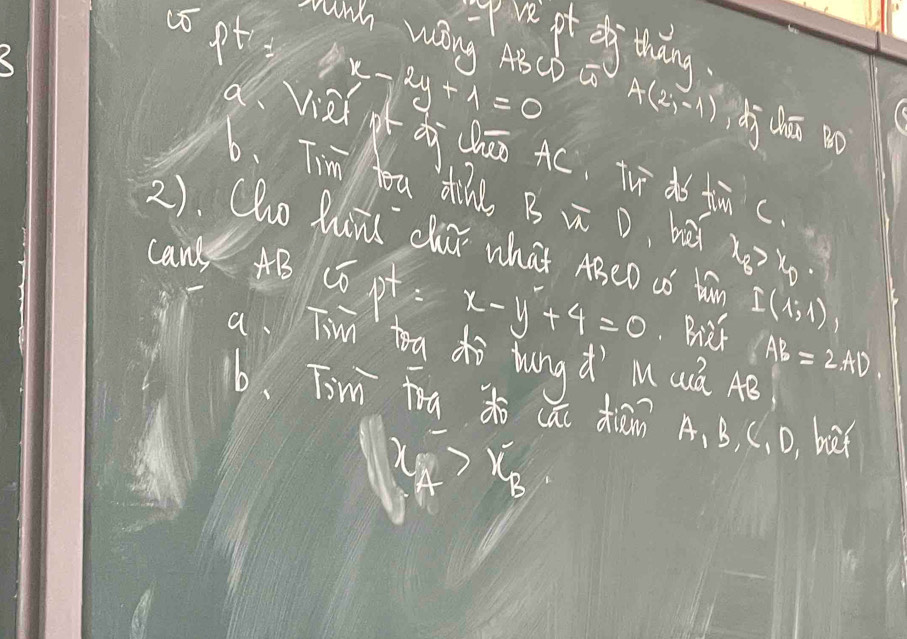 về pt đg thẳng.
vuông ABCD có A(2;-1), đg chéo BD
có pt: x - 2y + 1 = 0
a. Viết pt đg chéo AC. Từ đó tìm C.
b. Tìm tọa đỉnh B và D, biết x_B > x_D.
2). Cho hình chữ nhật ABCD có tâm I(1;1),
cạnh AB có pt: x - y + 4 = 0. Biết AB = 2.AD.
a. Tìm tọa độ trung đ' M của AB.
b. Tìm tọa độ các điểm A, B, C, D, biết
x_A > x_B.